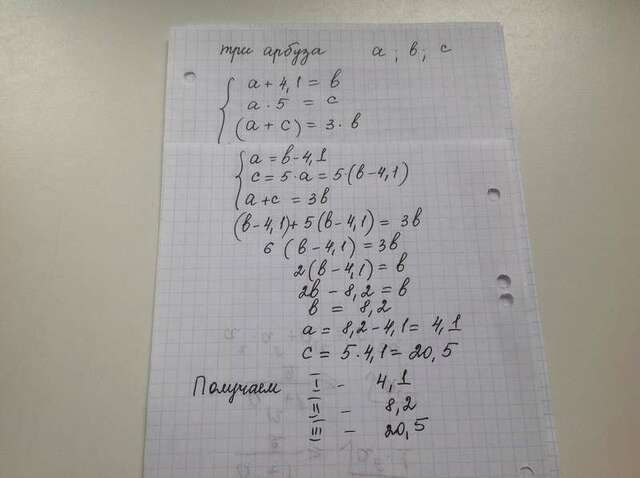 три арбуза a ; в ; с
a + 4,1 = в
a · 5 = c
(a + c) = 3 · в
a = в - 4,1
c = 5 · a = 5 · (в - 4,1)
a + c = 3в
(в - 4,1) + 5(в - 4,1) = 3в
6 (в - 4,1) = 3в
2(в - 4,1) = в
2в - 8,2 = в
в = 8,2
a = 8,2 - 4,1 = 4,1
c = 5 · 4,1 = 20,5
Получаем I - 4,1
II - 8,2
III - 20,5